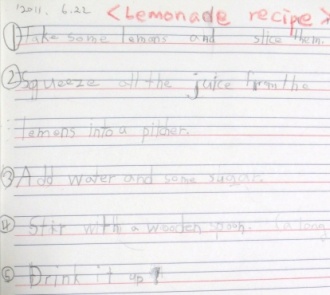 '2011. 6.22 <Lemonade recipe>
① Take some lemons and slice them.
② Squeeze all the juice from the
lemons into a pitcher.
③ Add water and some sugar.
④ Stir with a wooden spoon. (a long
⑤ Drink it up!